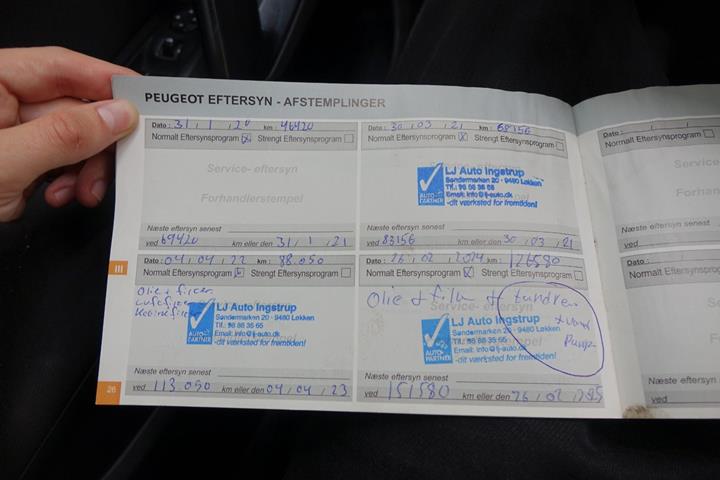 PEUGEOT EFTERSYN - AFSTEMPLINGER
Dato: 31 / 1 / 20 km: 46420
Normalt Eftersynsprogram Strengt Eftersynsprogram
Service- eftersyn
Forhandlerstempel
Næste eftersyn senest
ved 69420 km eller den 31 / 1 / 21
Dato: 30 / 03 / 21 km: 68156
Normalt Eftersynsprogram Strengt Eftersynsprogram
LJ Auto Ingstrup
Søndermarken 20 - 9480 Løkken
Tlf.: 98 88 35 65
Email: info@lj-auto.dk
-dit værksted for fremtiden!
AUTO PARTNER
Næste eftersyn senest
ved 83156 km eller den 30 / 03 / 21
Dato: 04 / 04 / 22 km: 88.050
Normalt Eftersynsprogram Strengt Eftersynsprogram
Olie + filter
Luftfilter
Kabinefilter
LJ Auto Ingstrup
Søndermarken 20 - 9480 Løkken
Tlf.: 98 88 35 65
Email: info@lj-auto.dk
-dit værksted for fremtiden!
AUTO PARTNER
Næste eftersyn senest
ved 113 050 km eller den 04 / 04 / 23
Dato: 26 / 02 / 2024 km: 126580
Normalt Eftersynsprogram Strengt Eftersynsprogram
Olie + filter + tandrem
+ vand
Pumpe
LJ Auto Ingstrup
Søndermarken 20 - 9480 Løkken
Tlf.: 98 88 35 65
Email: info@lj-auto.dk
-dit værksted for fremtiden!
AUTO PARTNER
Næste eftersyn senest
ved 151580 km eller den 26 / 02 / 2025
III
26
Dato:
Normalt Eftersynsprogram
Næste eftersyn senest
ved
Dato:
Normalt Eftersynsprogram
Næste eftersyn senest
ved